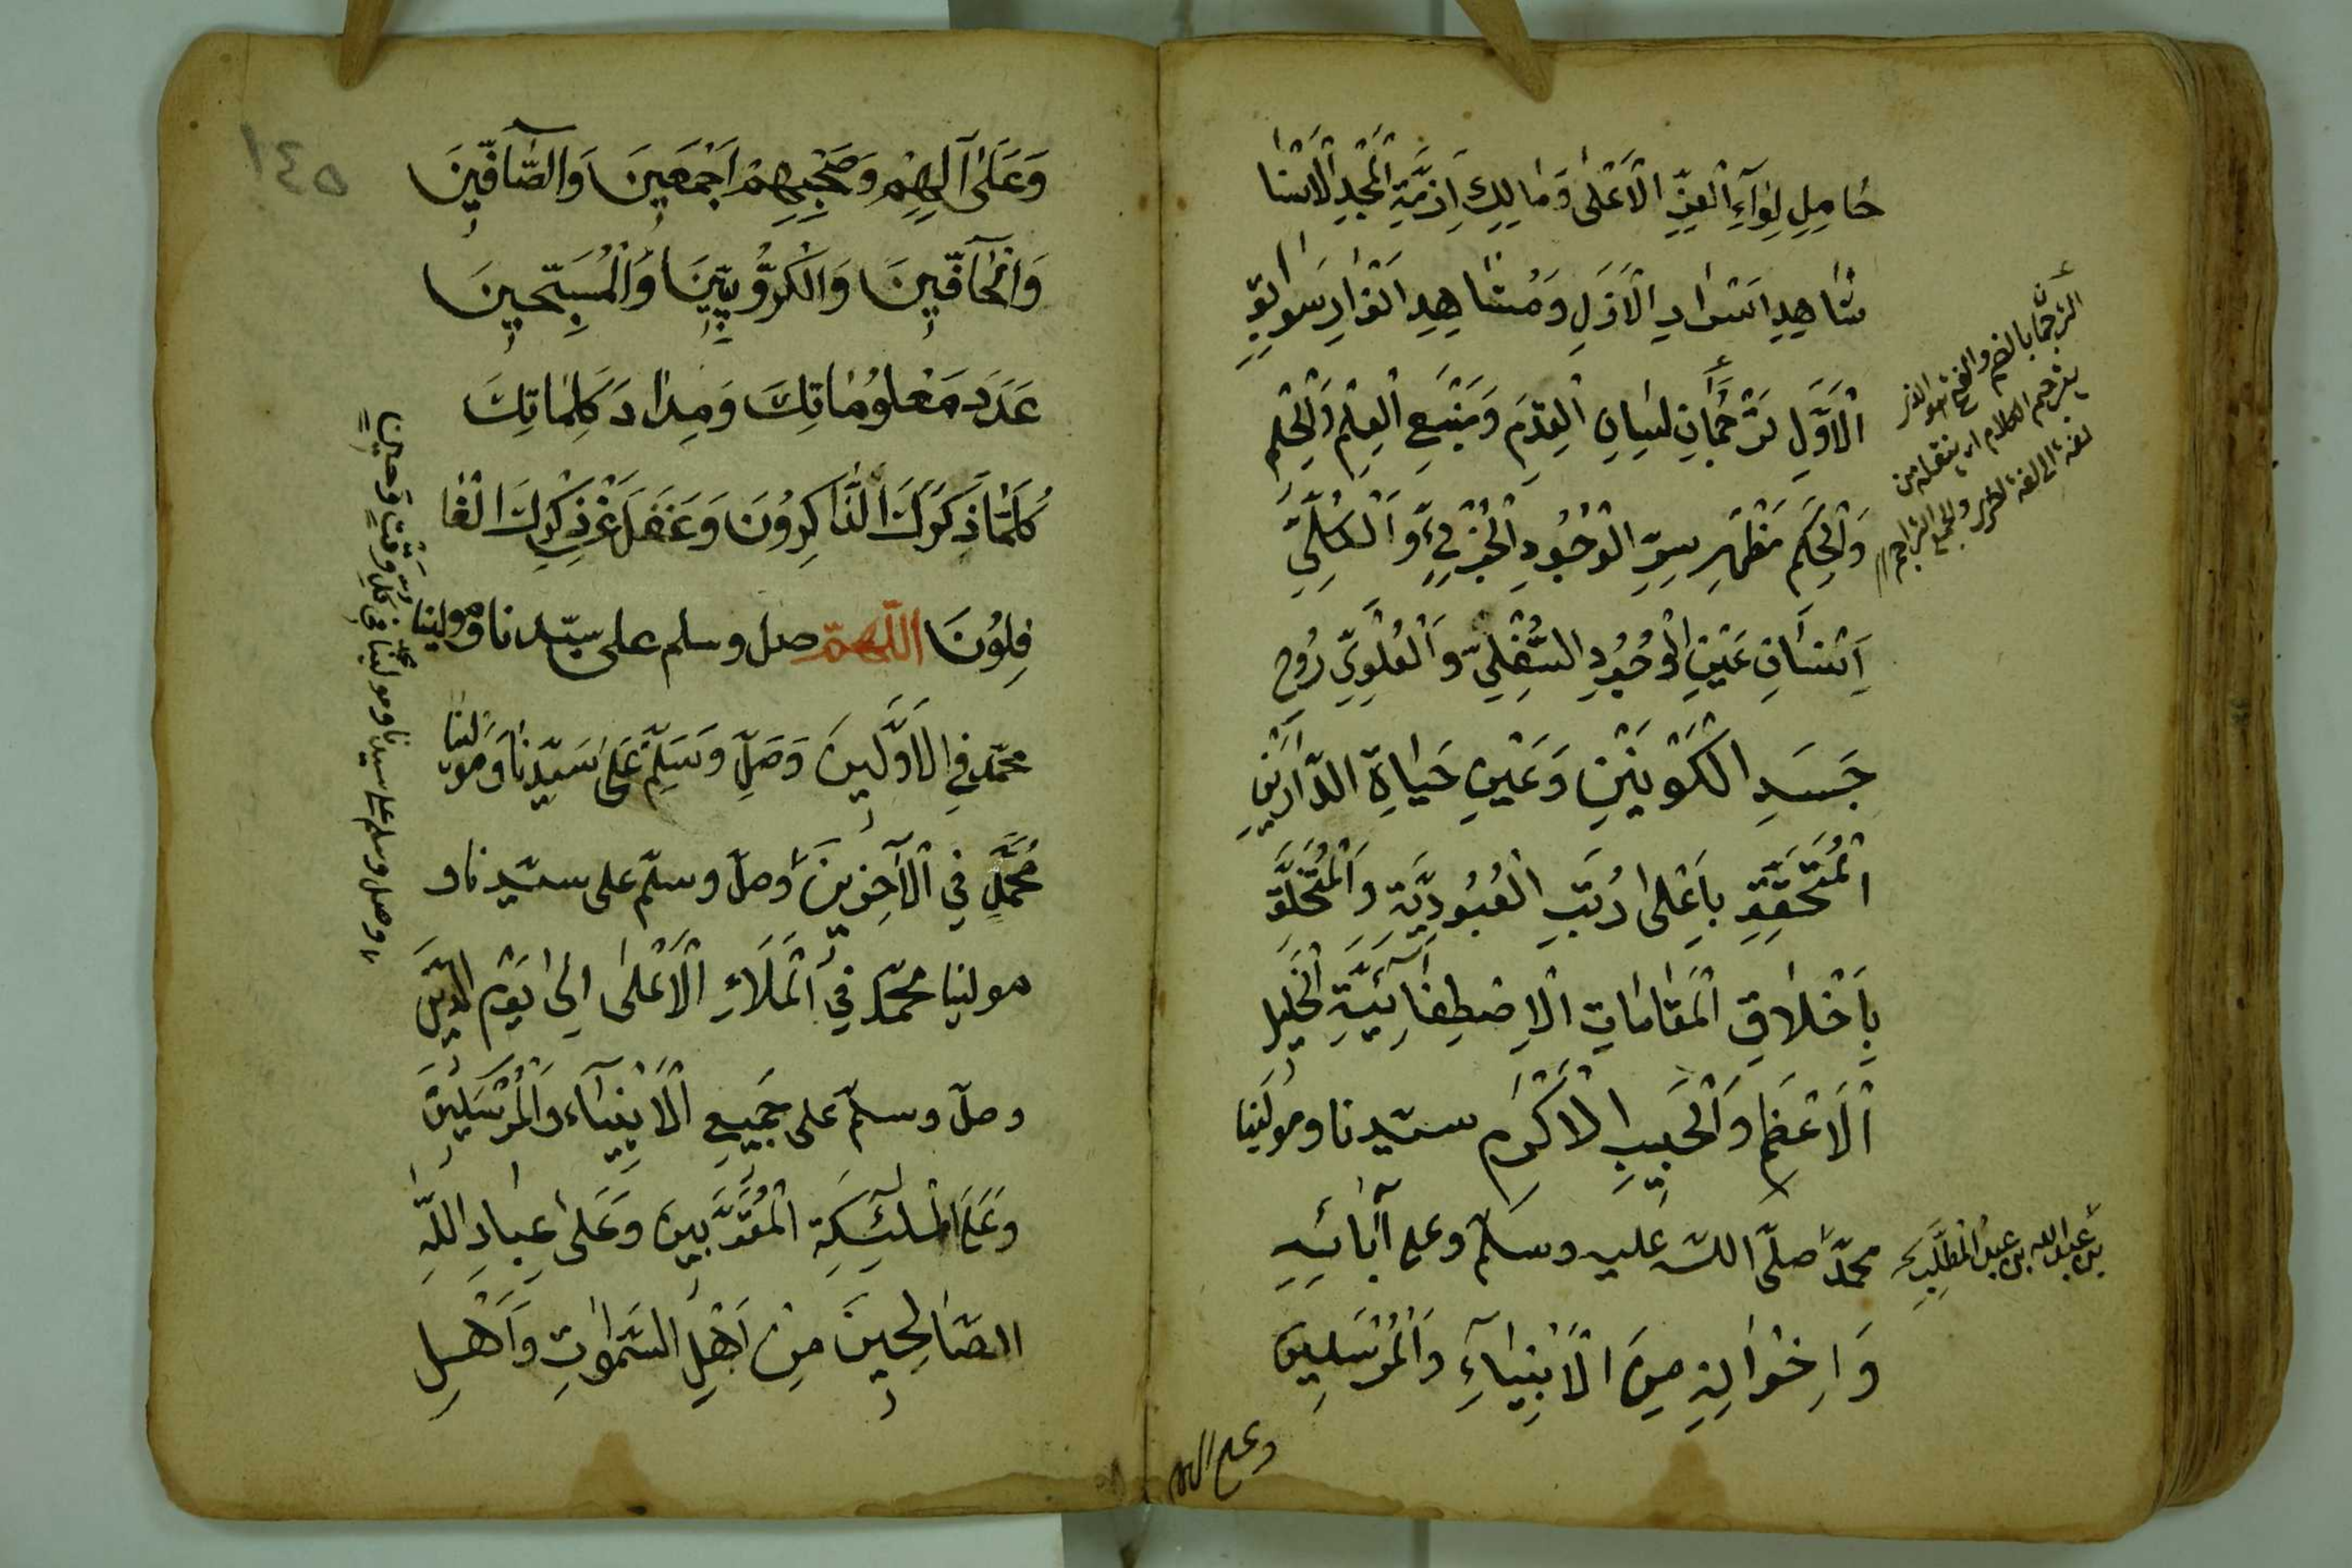 حَامِلِ لِوَآءِ الْعِزِّ الْاَعْلٰى وَمَالِكِ اَزِمَّةِ الْمَجْدِ الْاَسْنٰا
شَاهِدِ اَسْرَارِ الْاَزَلِ وَمُشَاهِدِ اَنْوَارِ سَوَابِقِ
الْاَوَّلِ تَرْجُمَانِ لِسَانِ الْقِدَمِ وَمَنْبَعِ الْعِلْمِ وَالْحِلْمِ
وَالْحِكَمِ مَظْهَرِ سِرِّ الْوُجُودِ الْجُزْئِيِّ وَالْكُلِّيِّ
اِنْسَانِ عَيْنِ الْوُجُودِ السُّفْلِيِّ وَالْعُلْوِيِّ رُوحِ
جَسَدِ الْكَوْنَيْنِ وَعَيْنِ حَيَاةِ الدَّارَيْنِ
الْمُتَحَقِّقِ بِاَعْلٰى رُتَبِ الْعُبُودِيَّةِ وَالْمُتَخَلِّقِ
بِاَخْلَاقِ الْمَقَامَاتِ الْاِصْطِفَائِيَّةِ الْخَلِيلِ
الْاَعْظَمِ وَالْحَبِيبِ الْاَكْرَمِ سيّدنا ومولينا
محمّد صلّى اللّه عليه وسلّم وعلى آبَائِهِ
وَاِخْوَانِهِ مِنَ الْاَنْبِيَآءِ وَالْمُرْسَلِينَ
وعلى الهم
الترجمان بالضم والفتح هو الذى
يترجم الكلام اى ينقله من
لغة الى لغة اخرى والجمع التراجم
بن عبد الله بن عبد المطّلب
١٤٥
وَعَلٰى آلِهِمْ وَصَحْبِهِمْ اَجْمَعِينَ وَالصَّافِّينَ
وَالْحَآفِّينَ وَالْكَرُّوبِيِّينَ وَالْمُسَبِّحِينَ
عَدَدَ مَعْلُومَاتِكَ وَمِدَادَ كَلِمَاتِكَ
كُلَّمَا ذَكَرَكَ الذَّاكِرُونَ وَغَفَلَ عَنْ ذِكْرِكَ الْغَا
فِلُونَ اَللّٰهمّ صل وسلم على سيّدنا ومولينا
محمّد فِي الْاَوَّلِينَ وَصَلِّ وَسَلِّمْ عَلٰى سَيِّدِنَا وَمَوْلٰينَا
مُحَمَّدٍ فِي الْآخِرِينَ وصلّ وسلّم على سيّدنا و
مولينا محمّد فِي الْمَلَاءِ الْاَعْلٰى اِلٰى يَوْمِ الدِّينِ
وصلّ وسلّم على جَمِيعِ الْاَنْبِيَآءِ وَالْمُرْسَلِينَ
وَعَلَى الْمَلٰئِكَةِ الْمُقَرَّبِينَ وَعَلٰى عِبَادِ اللّٰهِ
الصَّالِحِينَ مِنْ اَهْلِ السَّمٰوَاتِ وَاَهْلِ
وصل وسلم على سيدنا ومولينا محمد فى كل وقت وحين